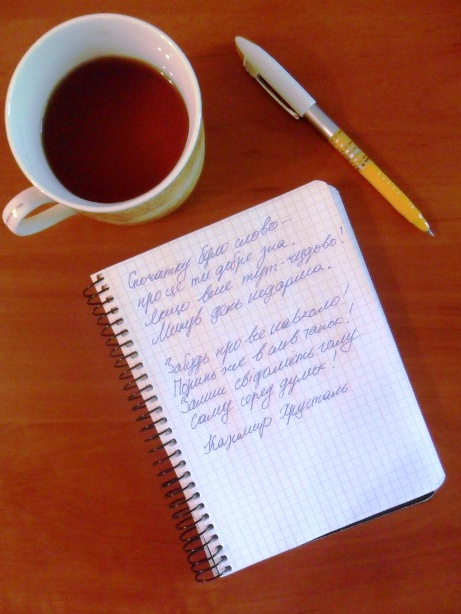 Спочатку було слово —
про це ти добре зна.
Якщо воно тут - чудово!
Минув день недарма.
Забудь про все навколо!
Поринь же в олів танок!
Залиш свідомість голу
саму серед думок!
Казимир Хрусталь